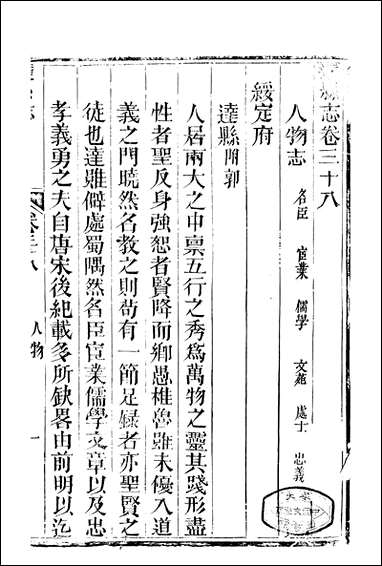 縣志卷三十八
人物志 名臣 宦業 儒學 文苑 處士 忠義
綏定府
達縣附郭
人居兩大之中禀五行之秀爲萬物之靈其踐形盡
性者聖反身強恕者賢降而鄉愚椎魯雖未優入道
義之門曉然名教之則苟有一節足録者亦聖賢之
徒也達雖僻處蜀隅然名臣宦業儒學文章以及忠
孝義勇之夫自唐宋後紀載多所缺畧由前明以迄
卷三十八
人物
一